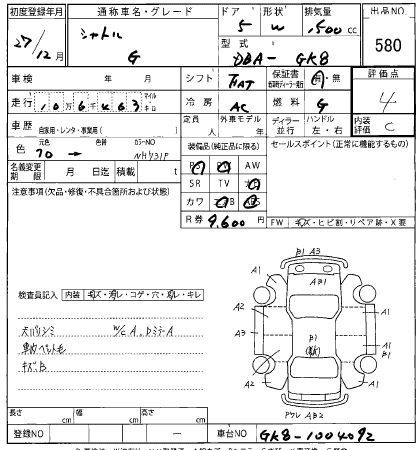 初度登録年月 通称車名・グレード ドア 形状 排気量 出品NO
27/12月 シャトル G 5 W 1,500 cc 580
型式 DBA-GK8
車検 年 月 シフト FAT 保証書 有・無 評価点
走行 10万6千463 マイル キロ 冷房 AC 燃料 G 4
車歴 自家用・レンタ・事業用( ) 定員 人 外車モデル ディーラー 並行 ハンドル 左・右 内装評価 C
色 元色 70 → 色替 カラーNO NH731P
装備品(純正品に限る) セールスポイント(正常に機能するもの)
名義変更期限 月 日迄 積載 t
PS PW AW
SR TV ナビ
カワ エアB ABS
R券 9,600円
注意事項(欠品・修復・不具合箇所および状態)
FW キズ・ヒビ割・リペア跡・X要
検査員記入 内装 キズ・汚レ・コゲ・穴・切レ・キレ
W/C A、DミラーA
キズB
B1 A3
A1 AB1 A1
A2
A3 B1 A1
A2 A1
AB2
長さ cm 幅 cm 高さ cm
登録NO — 車台NO GK8-1004092